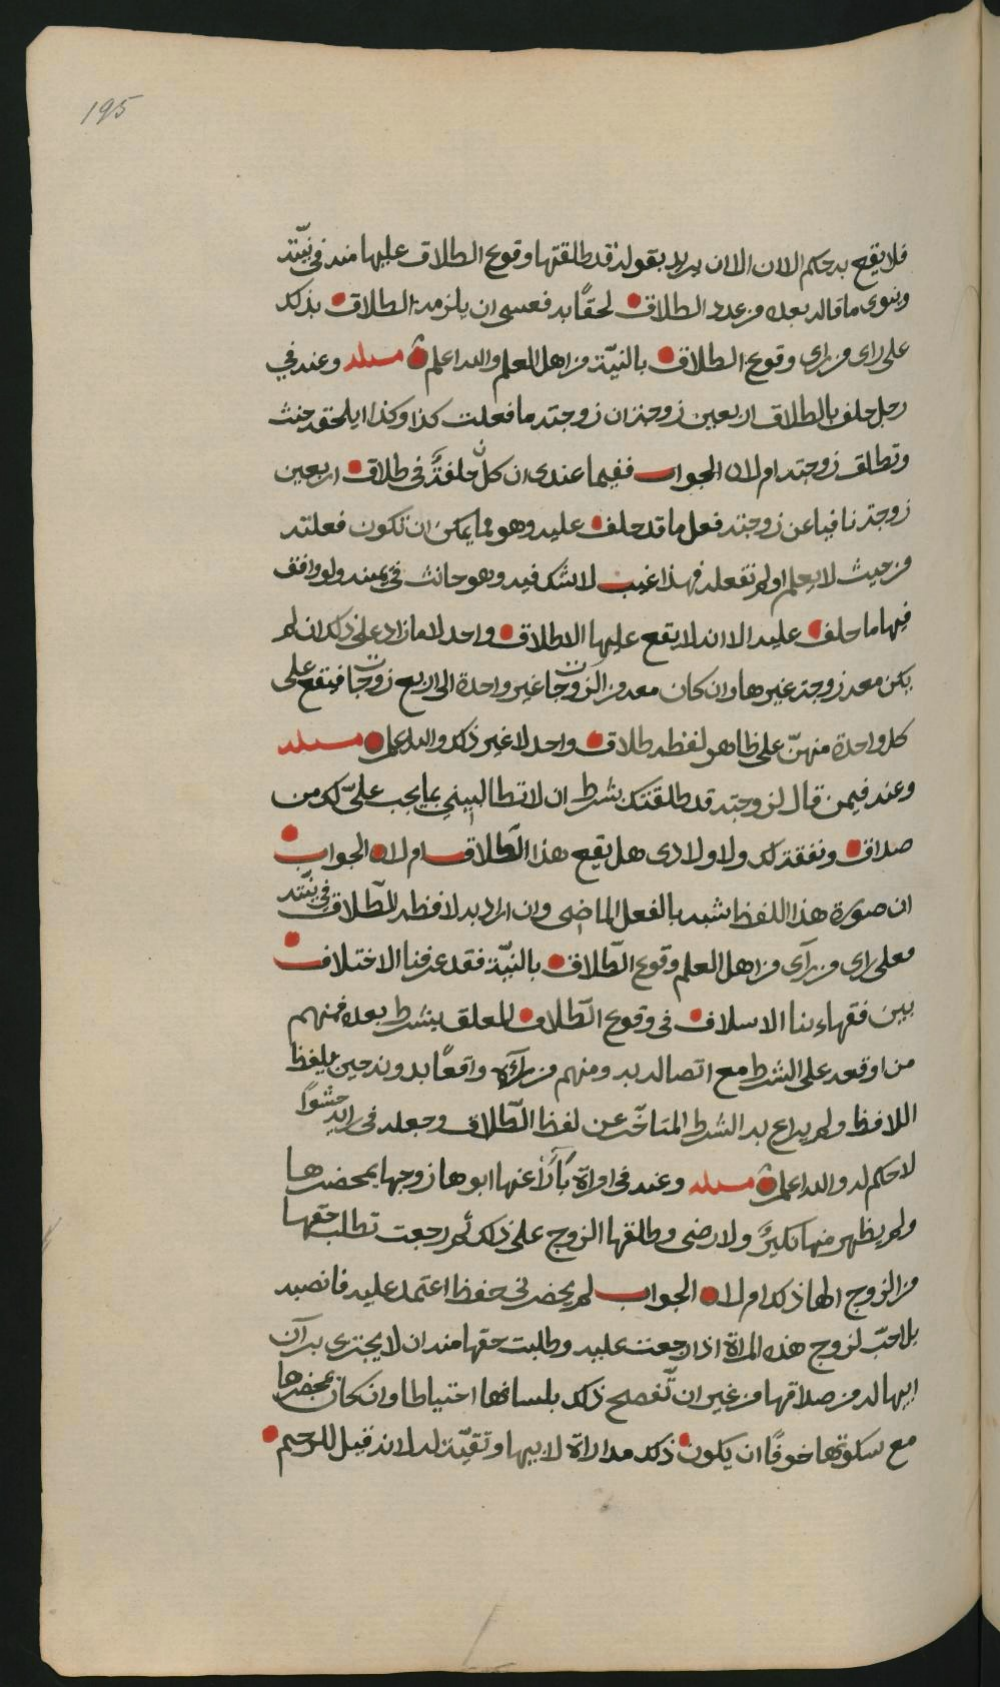 195
فلا يقع به حكم الان الا ان يريد بقوله قد طلقتها وقوع الطلاق عليها منه في نيّته
وينوى ما قاله بعده من عدد الطلاق لحقًا به فعسى ان يلزمه الطلاق بذلك
على راى من راى وقوع الطلاق بالنيّة من اهل العلم والله اعلم مسئلة وعنه في
رجل حلف بالطلاق اربعين زوجة ان زوجته ما فعلت كذا وكذا ايلحقه حنث
وتطلق زوجته ام لا الجواب ففيما عندى ان كل حلفة في طلاق اربعين
زوجة نافيا عن زوجته فعل ما قد حلف عليه وهو مما يمكن ان تكون فعلته
من حيث لا يعلم او لم تفعله فهذا غيب لا شك فيه وهو حانث في يمينه ولو وافق
فيها ما حلف عليه الا انه لا يقع عليها الا طلاق واحد لا ما زاد على ذلك ان لم
يكن معه زوجة غيرها وان كان معه من الزوجات غير واحدة الى اربع زوجات فيقع على
كل واحدة منهنّ على ظاهر لفظه طلاق واحد لا غير ذلك والله اعلم مسئلة
وعنه فيمن قال لزوجته قد طلقتك بشرط ان لا تطالبيني بما يجب علىّ لك من
صداق ونفقة لك ولاولادى هل يقع هذا الطّلاق ام لا الجواب
ان صورة هذا اللفظ شبه بالفعل الماضى وان اراد به لافظه الطّلاق في نيّته
فعلى راى من رآى من اهل العلم وقوع الطّلاق بالنيّة فقد عرفنا الاختلاف
بين فقهاءنا الاسلاف في وقوع الطّلاق المعلق بشرط بعده فمنهم
من اوقعه على الشرط مع اتصاله به ومنهم من رآه واقعًا بدونه حين يلفظ
اللافظ ولم يراع به الشرط المتاخّر عن لفظ الطّلاق وجعله في رايه حشوًا
لا حكم له والله اعلم مسئلة وعنه في امراة بارأ عنها ابوها زوجها بمحضرها
ولم يظهر منها نكيرٌ ولا رضى وطلقها الزوج على ذلك ثم رجعت تطلب حقها
من الزوج الها ذلك ام لا الجواب لم يحضرنى حفظا اعتمد عليه فانصبه
بل احبّ لزوج هذه المراة اذا رجعت عليه وطلبت حقها منه ان لا يجتزى ببرآن
ابيها له من صداقها من غير ان تفصح ذلك بلسانها احتياطا وان كان بمحضرها
مع سكوتها خوفًا ان يكون ذلك مداراة لابيها وتقيّة له لانه قيل للرحيم